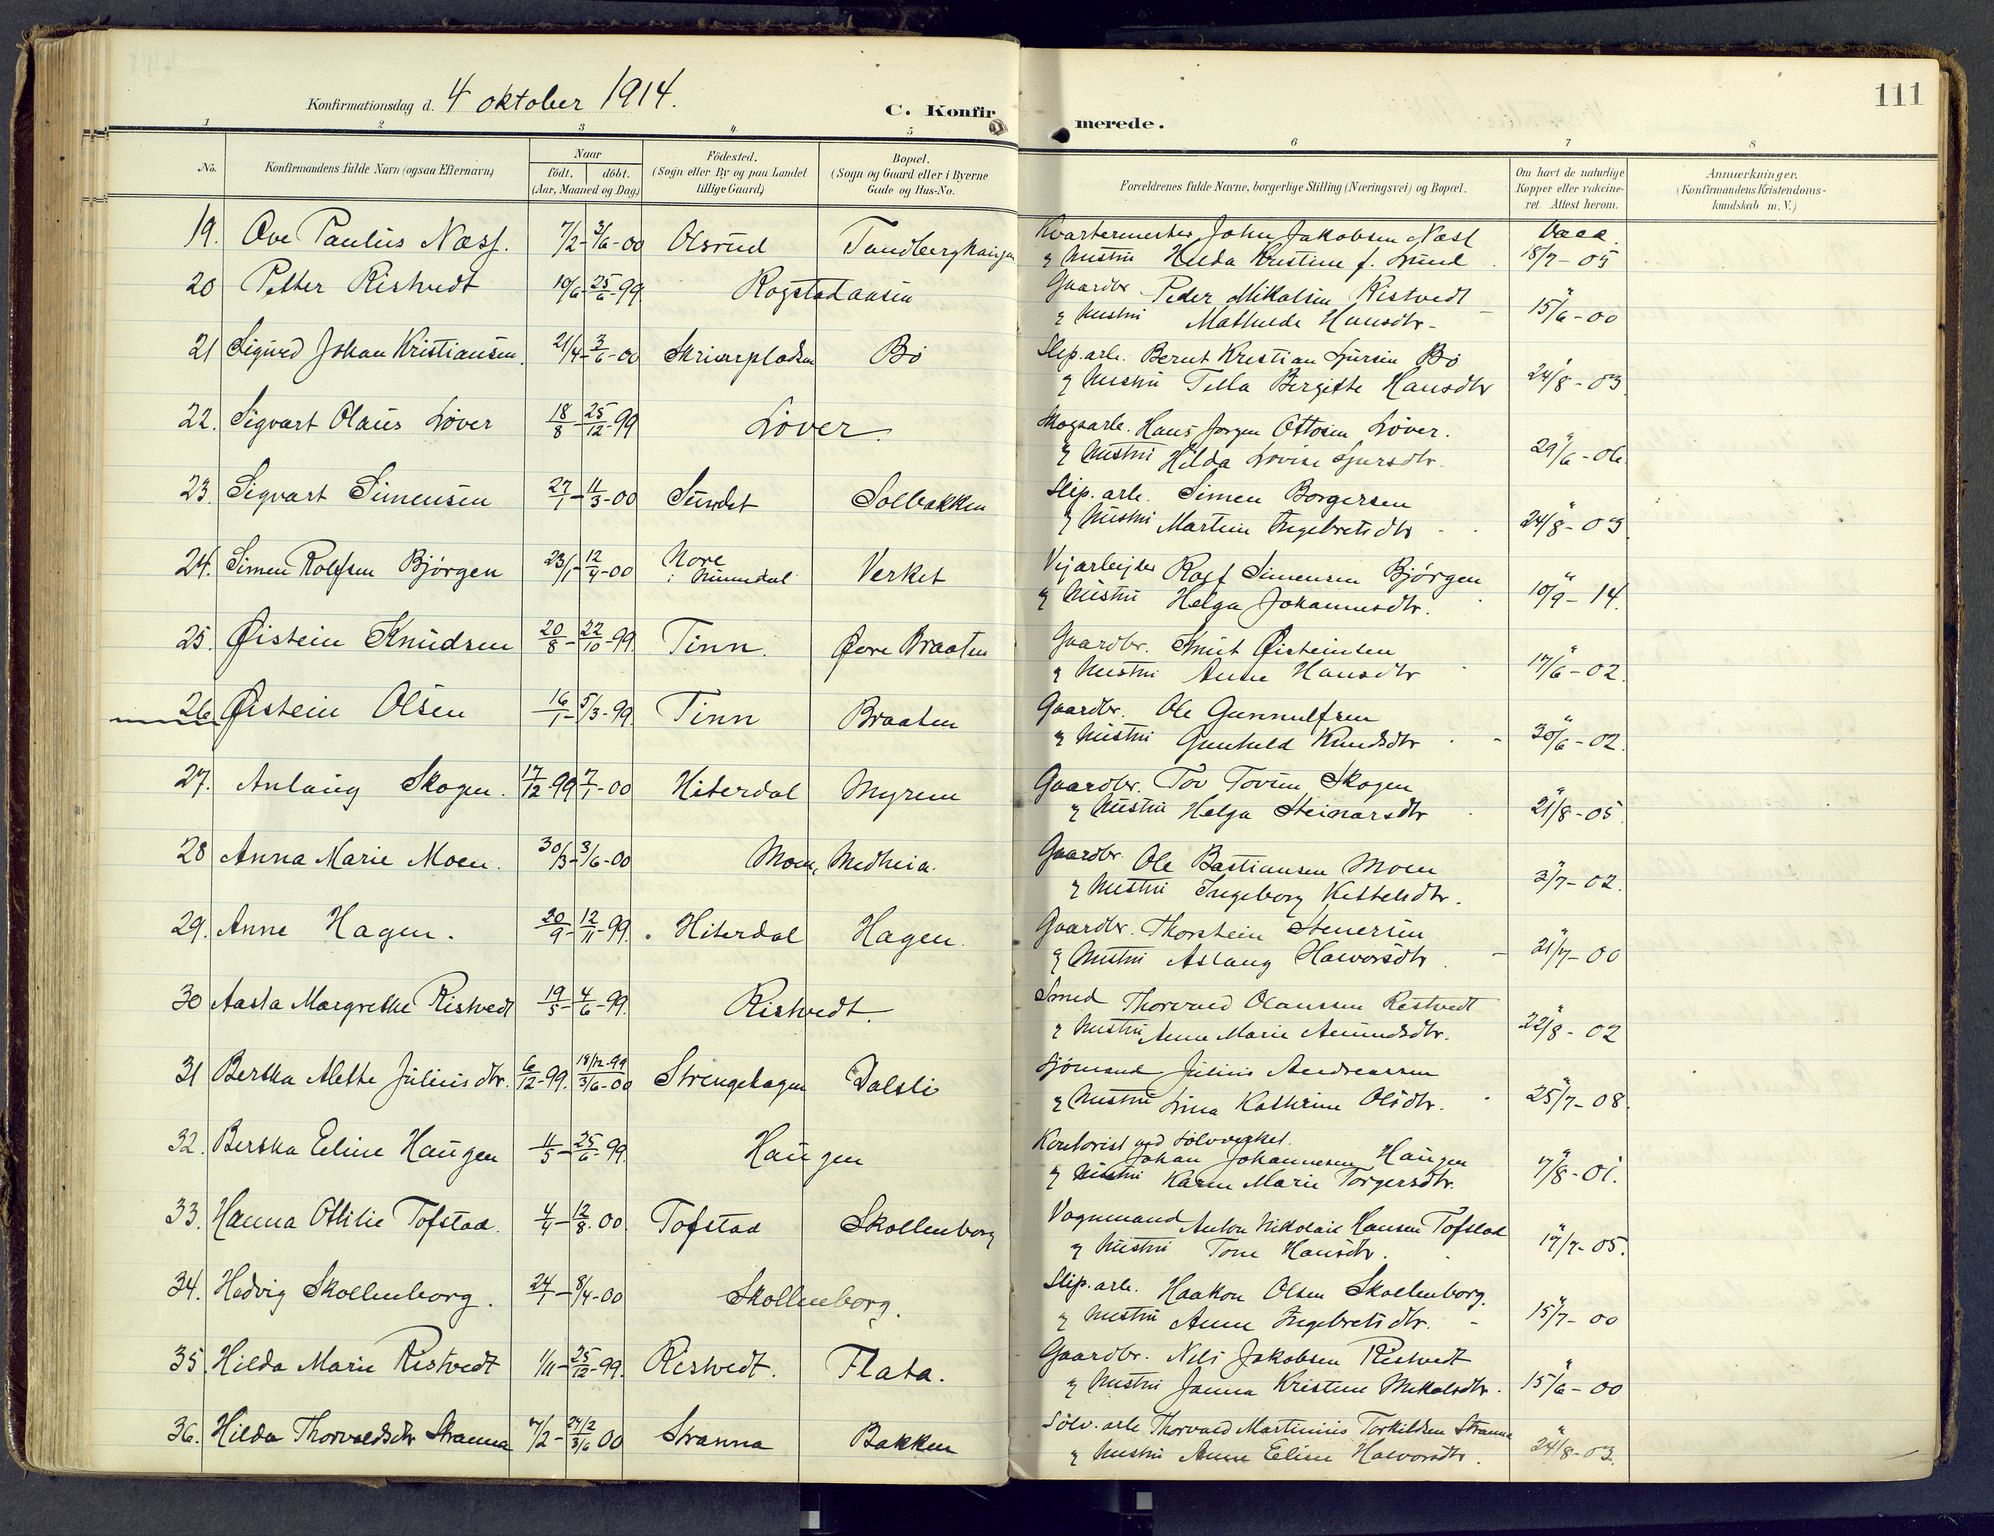 111
Konfirmationsdag d. 4 oktober 1914.
C. Konfir merede.
1 2 3 4 5 6 7 8
No. Konfirmandens fulde Navn (ogsaa Efternavn) Naar født. døbt. (Aar, Maaned og Dag) Födested. (Sogn eller By og paa Landet tillige Gaard) Bopæl. (Sogn og Gaard eller i Byerne Gade og Hus-No. Forældrenes fulde Navne, borgerlige Stilling (Næringsvei) og Bopæl. Om havt de naturlige Kopper eller vakcineret Attest herom. Anmærkninger. (Konfirmandens Kristendomskundskab m. V.)
19. Ove Paulus Næss. 7/2 - 3/6 - 00 Olsrud Tandberghaugen Kvartermester John Jakobsen Næss Vacc.
g Mustru Hilda Kristine f. Lund 18/7 - 05
20 Petter Ristvedt 10/6 - 25/6 - 99 Rogstadaasen Gaardbr. Peder Mikalsen Ristvedt "
g Mustru Mathilde Hansdtr 15/6 - 00
21 Sigurd Johan Kristiansen 21/4 - 3/6 - 00 Skriverpladsen Bø Slip. arb. Bernt Kristian Sjursen Bø
g Mustru Tilla Bergitte Hansdtr 24/8 - 03
22. Sigvart Olaus Løver 18/8 - 25/12 - 99 Løver. Skogsarb. Hans Jørgen Ottosen Løver. "
g Mustru Hilda Lovise Sjursdtr. 29/6 - 06.
23. Sigvart Simensen 27/1 - 11/3 - 00 Sundet Solbakken Slip. arb. Simen Borgersen "
g Mustru Martine Ingebretsdtr 24/8 - 03
24. Simen Rolfsen Bjørgen 23/1 - 12/4 - 00 Nore i Numedal Verket Vejarbejder Rolf Simensen Bjørgen "
g Mustru Helga Johannesdtr. 10/9 - 14.
25. Øistein Knudsen 20/8 - 22/10 - 99. Tinn. Øvre Braaten Gaardbr. Knut Øisteinsen "
g Mustru Anne Hansdtr 17/6 - 02.
26. Øistein Olsen 16/1 - 5/3 - 99. Tinn Braaten Gaardbr. Ole Gunnulfsen "
g Mustru Gunhild Knudsdtr 30/6 - 02.
27. Aslaug Skogen. 17/12 - 99 7/1 - 00 Hiterdal Myrene Gaardbr. Tov Tovsen Skogen "
g Mustru Helga Steinarsdtr 21/8 - 05.
28 Anna Marie Moen. 30/3 - 3/6 - 00 Moen, Medheia. Gaardbr. Ole Bastiansen Moen "
g Mustru Ingeborg Kittelsdtr. 3/7 - 02.
29. Anne Hagen. 20/9 - 12/11 - 99. Hiterdal Hagen. Gaardbr. Thorstein Stenersen "
g Mustru Aslaug Halvorsdtr. 21/7 - 00
30 Aasta Margrethe Ristvedt 19/5 - 4/6 - 99. Ristvedt. Smed Thorvald Olaussen Ristvedt "
g Mustru Anne Marie Amundsdtr. 22/8 - 02
31 Bertha Alette Juliusdtr. 6/12 - 99. 18/12 - 99 3/6 - 00 Strengehagen Dalsli Sjømand Julius Andreassen "
g Mustru Lina Kathrine Olsdtr. 25/7 - 08.
32. Bertha Eline Haugen 11/5 - 25/6 - 99. Haugen Kontorist ved sølvverket. Johan Johannesen Haugen "
g Mustru Karen Marie Torgersdtr. 7/8 - 01.
33. Hanna Otilie Tofstad. 4/4 - 12/8. 00. Tofstad Skollenborg Vognmand Anton Nikolai Hansen Tofstad "
g Mustru Tone Hansdtr. 17/7 - 05.
34. Hedvig Skollenborg. 24/1 - 8/4 - 00 Skollenborg. Slip. arb. Haakon Olsen Skollenborg. "
g Mustru Anne Ingebretsdtr. 15/7 - 00
35. Hilda Marie Ristvedt 1/11 - 25/12 - 99. Ristvedt. Flata. Gaardbr. Nils Jakobsen Ristvedt "
g Mustru Janna Kristine Mikalsdtr. 15/6 - 00
36. Hilda Thorvaldsdtr Stranna 7/2 - 27/2 3/6 00 Stranna Bakken Sølv. arb Thorvald Martinius Torkildsen Stranna "
g Mustru Anne Eline Halvorsdtr. 24/8 - 03.